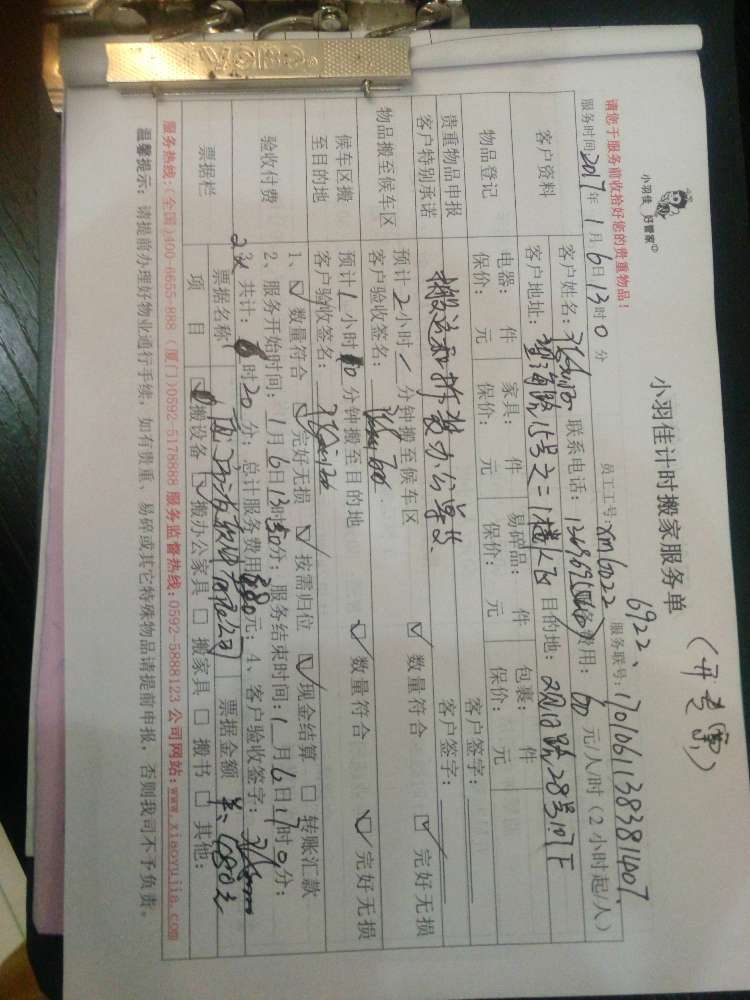 (开走票)
小羽佳 好管家
小羽佳计时搬家服务单
6922、
请您于服务前收拾好您的贵重物品！
员工工号: xm6022 服务联号: 7010611383814007
服务时间: 2017年 1月 6日 13时 0分
服务费用: 60 元/人/时 (2小时起/人)
客户资料
客户姓名: 联系电话:
客户地址: 望海路15号之二1楼 目的地: 观日路28号107F
物品登记
电器: 件 家具: 件 易碎品: 件 包裹: 件
保价: 元 保价: 元 保价: 元 保价: 元
贵重物品申报 客户签字:
客户特别承诺 搬运和拆装办公家具 客户签字:
物品搬至候车区
预计 2 小时 / 分钟搬至候车区 数量符合 完好无损
客户验收签名:
候车区搬至目的地
预计 1 小时 分钟搬至目的地 数量符合 完好无损
客户验收签名:
验收付费
1、 数量符合 完好无损 按需归位 现金结算 转账汇款
2、服务开始时间: 1月 6日 13时 分; 服务结束时间: 1月 6日 17时 0分;
3、共计: 时 20 分; 总计服务费用 元; 4、客户验收签字:
票据栏
票据名称 票据金额 羊: 680元
项目 搬设备 搬办公家具 搬家具 搬书 其他:
服务热线:(全国)400-6655-888 (厦门)0592-5178888 服务监督热线:0592-5888123 公司网站:www.xiaoyujia.com
温馨提示: 请提前办理好物业通行手续, 如有贵重、易碎或其它特殊物品请提前申报, 否则我司不予负责。